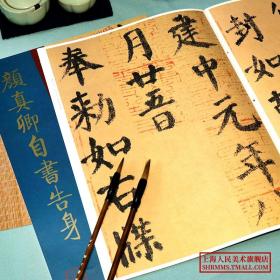 封如
建中元年
月廿五日
奉勅如右牒
顏真卿自書告身
上海人民美术旗舰店
SHRMMS.TMALL.COM